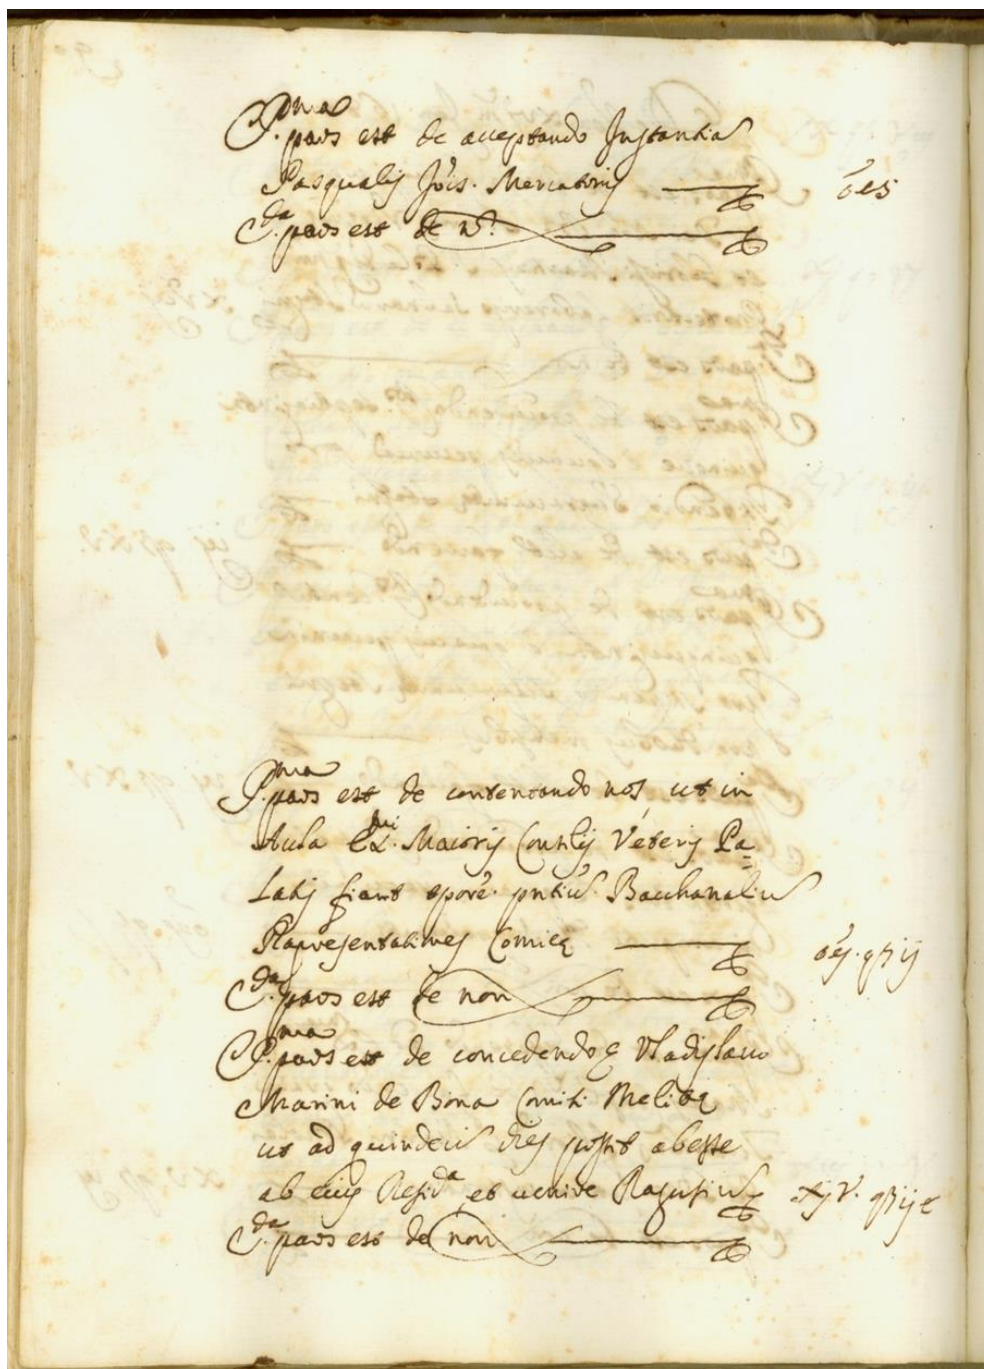 P.ma pars est de acceptando Instantia
Pasqualis Jo'is. Mercatoris
o'es
S.da pars est de n.
P.ma pars est de contentando nos ut in
Aula Ex.mi Maioris Consilij Veteris Pa=
latij fiant Bacchanaliu
Rapresentationes Comicę
o'es. 
S.da pars est de non
P.ma pars est de concedendo Vladislavo
Marini de Bona Comiti Melitę
ut ad quindeci dies possit abesse
ab eius Resid.a et venire Ragusiu
S.da pars est de non